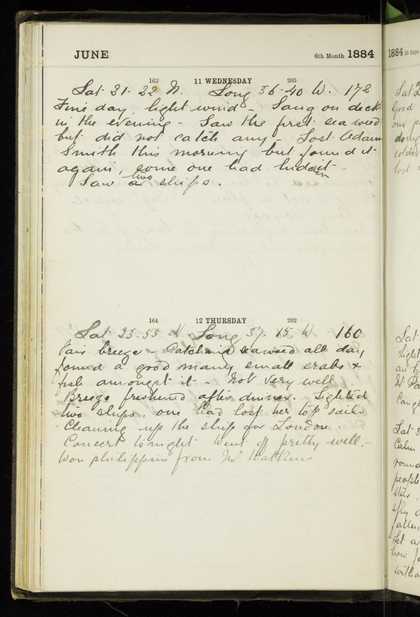 JUNE 6th Month 1884
163 11 WEDNESDAY 203
Sat 31. 22 N. Long 36. 40 W. 172
Fine day light wind - Sang on deck
in the evening - Saw the first sea weed
but did not catch any - Lost Adam
Smith this morning but found it
again, some one had hid it
Saw two ships.
164 12 THURSDAY 202
Lat 33-53 N Long 37. 15 W. 160
fair breeze - Catching seaweed all day
found a good many small crabs &
fish amongst it - Not very well
Breeze freshened after dinner. Sighted
two ships, one had lost her top sails
Cleaning up the ship for London.
Concert tonight went off pretty well -
Won philippine from Mr
1884